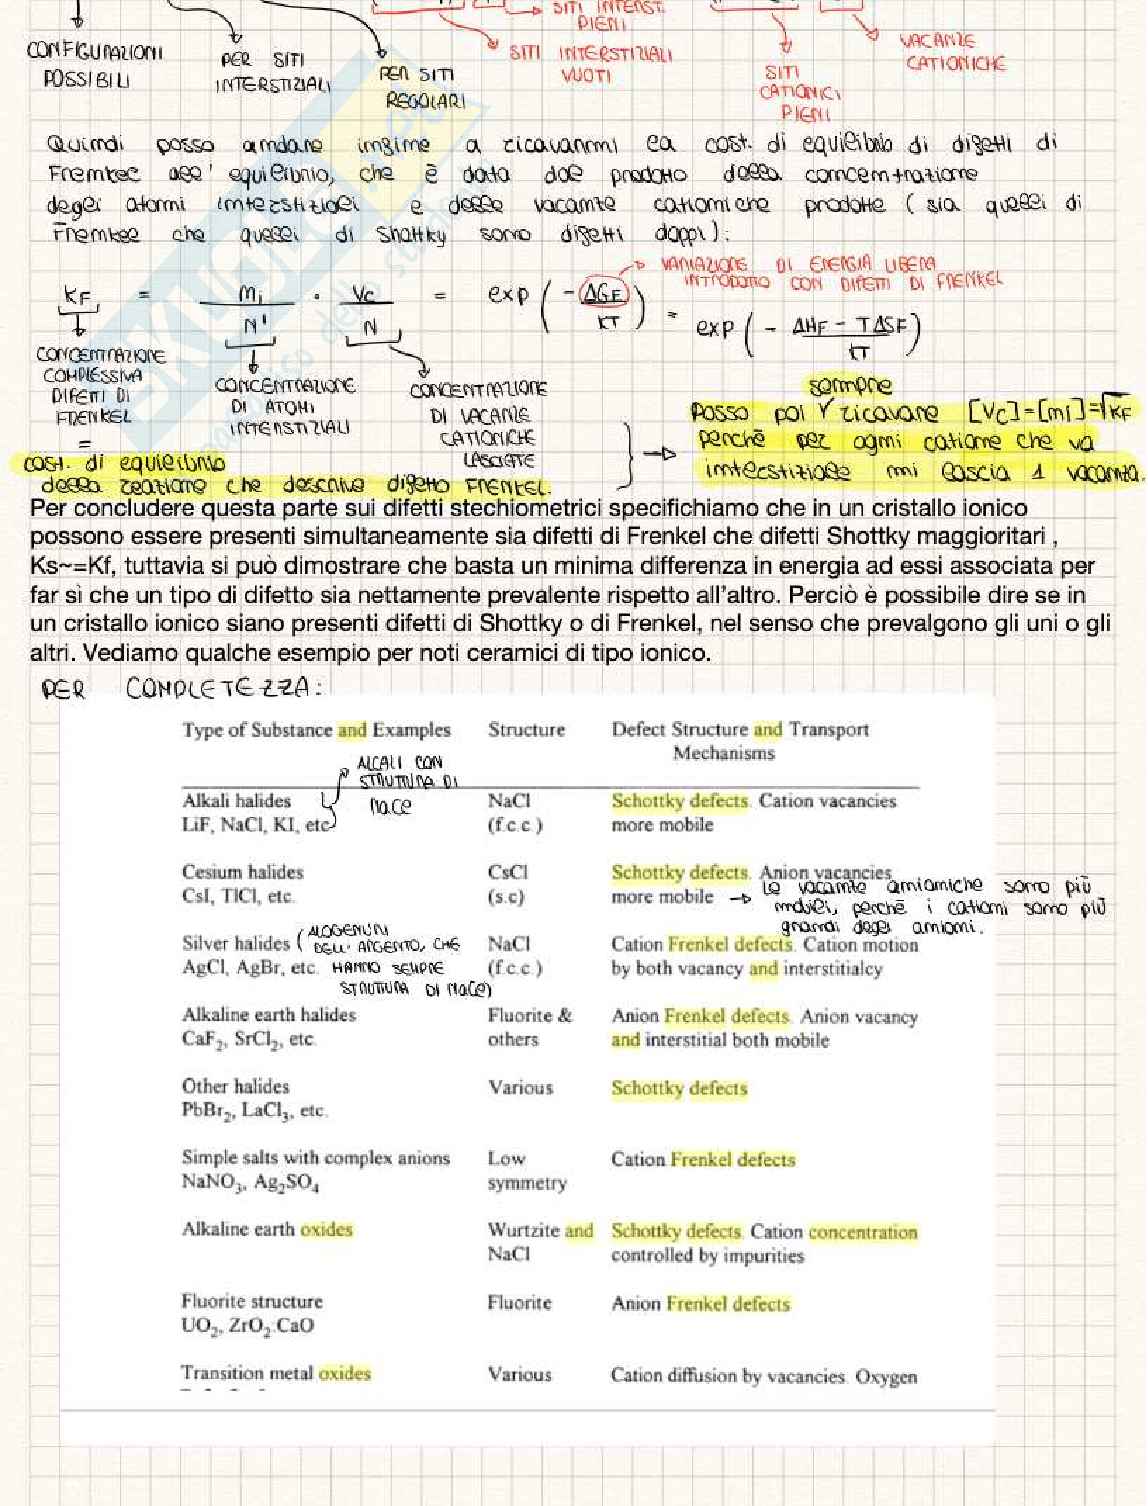 SITI INTERST.
PIENI
CONFIGURAZIONI
POSSIBILI
PER SITI
INTERSTIZIALI
PER SITI
REGOLARI
SITI INTERSTIZIALI
VUOTI
SITI
CATIONICI
PIENI
VACANZE
CATIONICHE
Quindi posso andare insime a ricavarmi la cost. di equilibrio di difetti di
Frenkel all' equilibrio, che è data dal prodotto della concentrazione
degli atomi interstiziali e delle vacante cationiche prodotte (sia quelli di
Frenkel che quelli di Shottky sono difetti doppi):
VARIAZIONE DI ENERGIA LIBERA
INTRODOTTO CON DIFETTI DI FRENKEL
KF = ni/N' · Vc/N = exp (- ΔGF/KT) = exp (- ΔHF - TΔSF/KT)
CONCENTRAZIONE
COMPLESSIVA
DIFETTI DI
FRENKEL
=
cost. di equilibrio
della reazione che descrive difetto FRENKEL.
CONCENTRAZIONE
DI ATOMI
INTERSTIZIALI
CONCENTRAZIONE
DI VACANZE
CATIONICHE
LASCIATE
sempre
Posso poi ricavare [Vc]=[ni]=√KF
perchè per ogni catione che va
interstiziale mi lascia 1 vacanza.
Per concludere questa parte sui difetti stechiometrici specifichiamo che in un cristallo ionico
possono essere presenti simultaneamente sia difetti di Frenkel che difetti Shottky maggioritari ,
Ks~=Kf, tuttavia si può dimostrare che basta un minima differenza in energia ad essi associata per
far sì che un tipo di difetto sia nettamente prevalente rispetto all'altro. Perciò è possibile dire se in
un cristallo ionico siano presenti difetti di Shottky o di Frenkel, nel senso che prevalgono gli uni o gli
altri. Vediamo qualche esempio per noti ceramici di tipo ionico.
PER COMPLETEZZA:
Type of Substance and Examples Structure Defect Structure and Transport
Mechanisms
ALCALI CON
STRUTTURA DI
NaCl
Alkali halides NaCl Schottky defects. Cation vacancies
LiF, NaCl, KI, etc (f.c.c.) more mobile
Cesium halides CsCl Schottky defects. Anion vacancies
CsI, TlCl, etc. (s.c) more mobile
le vacante anioniche sono più
mobili, perchè i cationi sono più
grandi degli anioni.
Silver halides NaCl Cation Frenkel defects. Cation motion
AgCl, AgBr, etc. (f.c.c.) by both vacancy and interstitialcy
(ALOGENURI
DELL' ARGENTO, CHE
HANNO SEMPRE
STRUTTURA DI NaCl)
Alkaline earth halides Fluorite & Anion Frenkel defects. Anion vacancy
CaF2, SrCl2, etc. others and interstitial both mobile
Other halides Various Schottky defects
PbBr2, LaCl3, etc.
Simple salts with complex anions Low Cation Frenkel defects
NaNO3, Ag2SO4 symmetry
Alkaline earth oxides Wurtzite and Schottky defects. Cation concentration
NaCl controlled by impurities
Fluorite structure Fluorite Anion Frenkel defects
UO2, ZrO2:CaO
Transition metal oxides Various Cation diffusion by vacancies. Oxygen